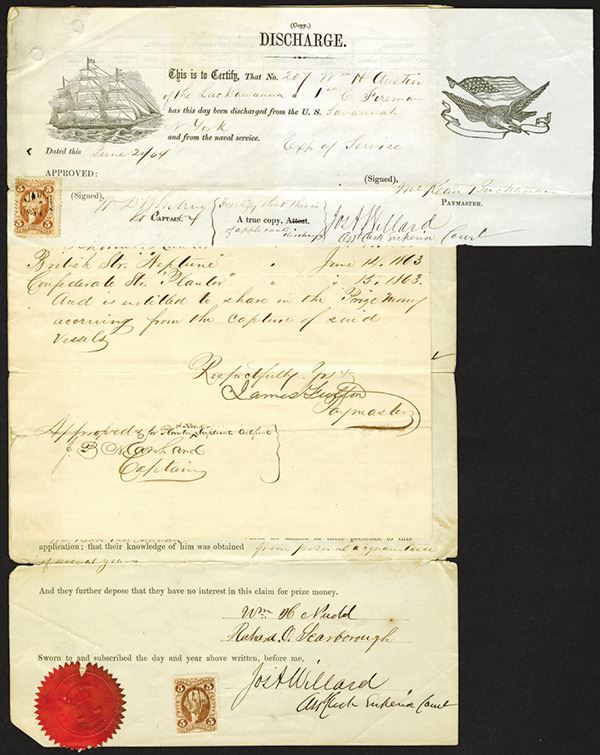 (Copy.)
DISCHARGE.
This is to Certify, That No. 207 Wm H Austin
of the Lackawanna a 1st C Fireman
has this day been discharged from the U. S. Savannah
N York
and from the naval service. Exp of Service
Dated this June 24/64
APPROVED:
(Signed), McKean Buchanan
PAYMASTER.
(Signed),
CAPTAIN.
I certify that this is
A true copy, Attest.
of applicants discharge
Jos A Willard
Asst Clerk Superior Court
British Str. Neptune " June 14, 1863
Confederate Str. "Planter" " " 15. 1863.
And is entitled to share in the Prize Money
accruing from the capture of said
Vessels
Respectfully Yrs
James Fulton
Paymaster
Approved
for Planter & Neptune Duplicate Certificate
J. B. Marchand
Captain
application; that their knowledge of him was obtained from personal acquaintance
of several years
And they further depose that they have no interest in this claim for prize money.
Wm H Nudd
Richard O. Scarborough
Sworn to and subscribed the day and year above written, before me,
Jos A Willard
Asst Clerk Superior Court
5 5